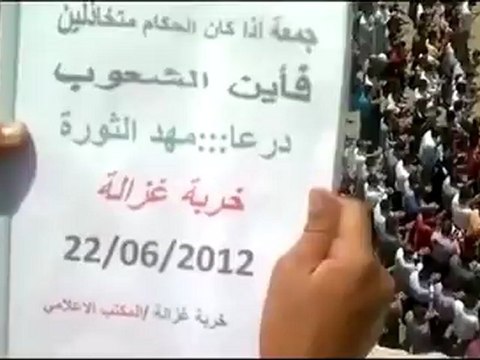 جمعة اذا كان الحكام متخاذلين
فأين الشعوب
درعا:::مهد الثورة
خربة غزالة
22/06/2012
خربة غزالة /المكتب الاعلامي